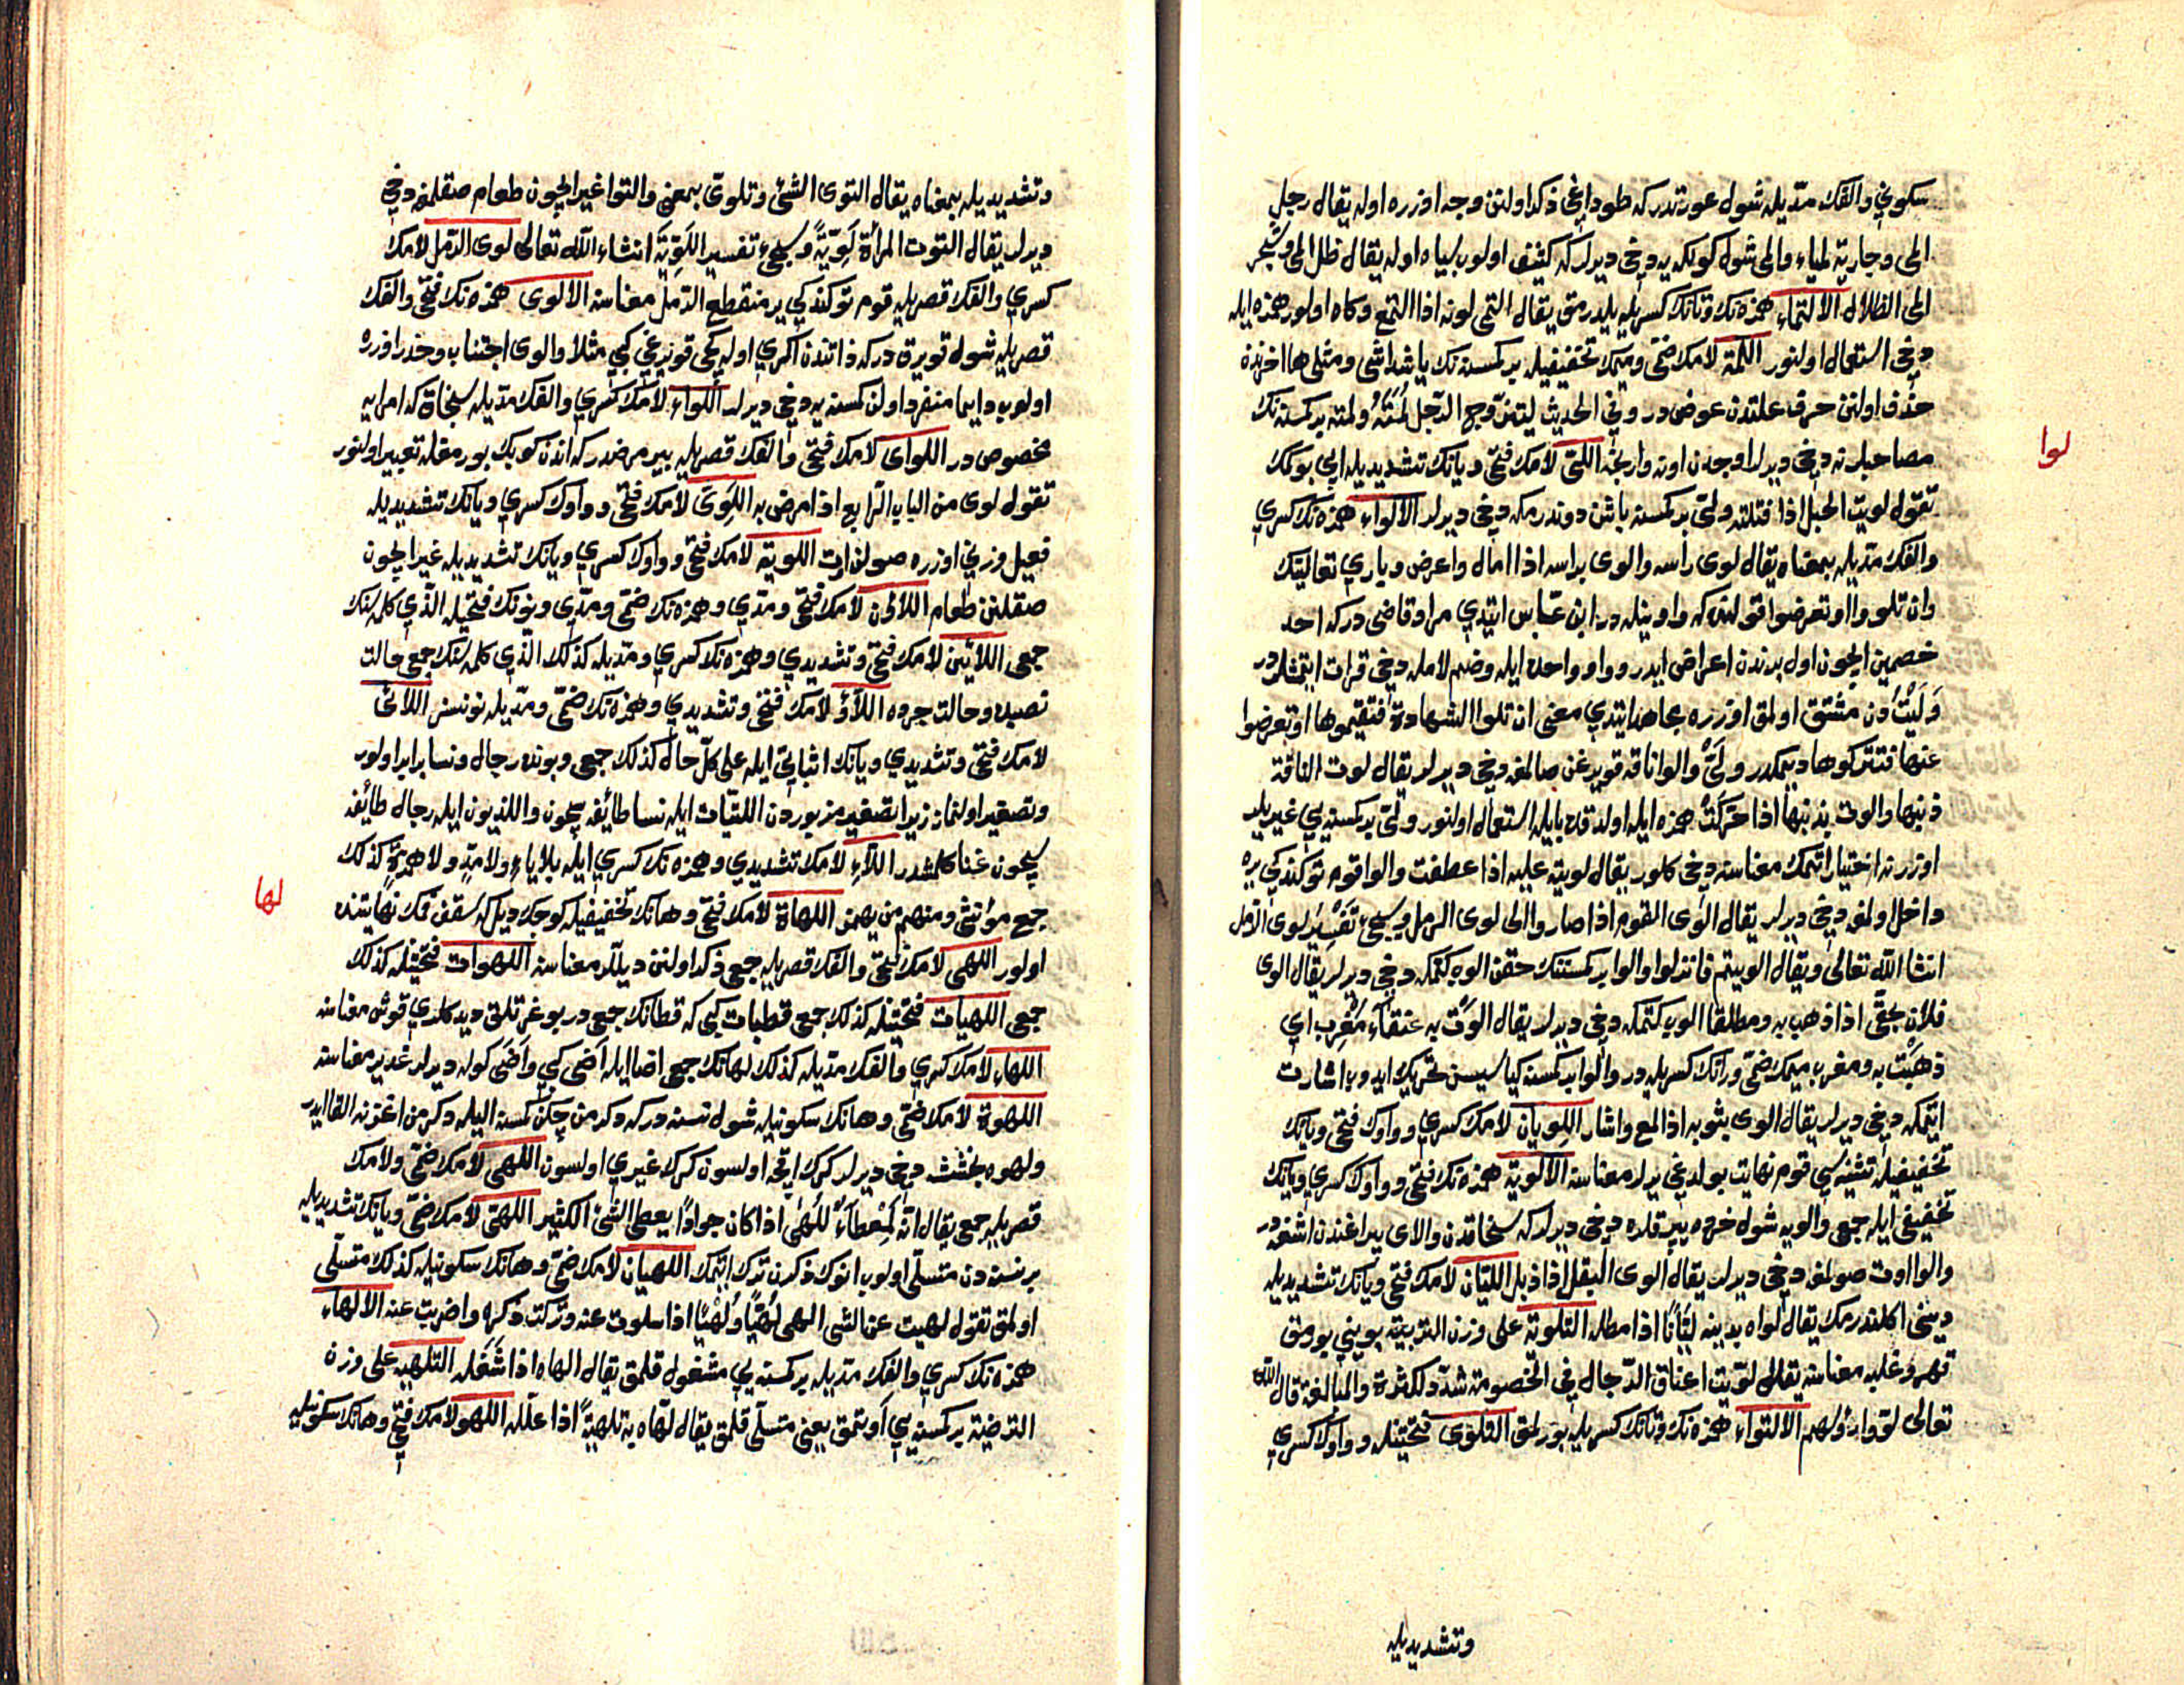 سكوني والفك مدّيله شول عورتدركه طوداغي ذكر اولنن وجه اوزره اوله يقال رجل
المى وجارية لمياء والمى شول كولكه يه دخي ديرلركه كثيف اولوب سياه اوله يقال ظل المى وشجر
المى الظلال الالتماء همزه نك وتانك كسريله بلدرمق يقال التمى لونه اذا التمع وكاه اولور همزه ايله
دخي استعمال اولنور اللمة لامك ضمّي وميمك تخفيفيله بر كمسنه نك ياشداشي ومثلى ها اخرنده
حذف اولنن حرف علتدن عوض در وفي الحديث ليتزوج الرّجل لمته ولمته بر كمسنه نك
مصاحبلرنه دخي ديرلر اوجدن اونه وارنجه اللّى لامك فتحي ويانك تشديديله ايپ بوكمك
لوا
تقول لويت الحبل اذا فتلته ولىّ بر كمسنه باشن دوندرمكه دخي ديرلر الالواء همزه نك كسري
والفك مدّيله بمعناه يقال لوى راسه والوى براسه اذا امال واعرض وباري تعالينك
وان تلووا او تعرضوا قولنده كه واوينله در ابن عبّاس ايتدي مراد قاضي دركه احد
خصمين ايچون اول بريندن اعراض ايدر وواو واحده ايله وضم لامله دخي قرات ايتمشلردر
وَلَيْتُ دن مشتق اولمق اوزره مجاهد ايتدي معنى ان تلوا الشهادة فتقيموها او تعرضوا
عنها فتتركوها ديمكدر ولىّ والوا ناقه قويرغن صالمغه دخي ديرلر يقال لوت الناقة
ذنبها والوت بذنبها اذا حرّكت همزه ايله اولدقده بايله استعمال اولنور ولىّ بر كمسنه يي غيريلر
اوزرنه اختيار اتمك معناسنه دخي كلور يقال لويت عليه اذا عطفت والوا قوم توكندكي يره
داخل اولمغه دخي ديرلر يقال الوى القوم اذا صاروا الى لوى الرمل وسيجيء تفسير لوى الرمل
انشا الله تعالى ويقال الويتم فانزلوا والوا بر كمسنه نك حقن الوب كتمكه دخي ديرلر يقال الوى
فلان بحقّي اذا ذهب به ومطلقا الوب كتمكه دخي ديرلر يقال الوت به عنقاء مُغرِب اي
ذهبت به ومغرب ميمك ضمّي ورانك كسريله در والوا بر كمسنه كياسيسن تحريك ايدوب اشارت
ايتمكه دخي ديرلر يقال الوى بثوبه اذا لمع واشار اللِويان لامك كسري وواوك فتحي ويانك
تخفيفيله تثنيه سي قوم نهايت بولدغي يرلر معناسنه الالوية همزه نك فتحي وواوك كسري ويانك
تخفيفي ايله جمعى والويه شول خرده بيرقلره دخي ديرلركه سنجاقدن والاي بيراغندن اشغه در
والوا اوت صولمغه دخي ديرلر يقال الوى البقل اذا ذبل الليّان لامك فتحي ويانك تشديديله
ديني اكلندرمك يقال لواه بدينه ليّانًا اذا مطله التلوية على وزن التربية بويني بورمق
قهر وغلبه معناسنه يقال لوّيت اعناق الرّجال في الخصومة شدّد للكثرة والمبالغة قال الله
تعالى لوّوا رؤسهم الالتواء همزه نك وتانك كسريله بورلمق التلوّى فتحتيله وواوك كسري
وتشديديله
وتشديديله بمعناه يقال التوى الشئ وتلوّى بمعنى والتوا غير ايچون طعام صقلمغه دخي
ديرلر يقال التوت المرأة لَوِيّةً وسيجيء تفسير اللَوِيّة انشاء الله تعالى لوى الرّمل لامك
كسري والفك قصريله قوم توكندكي ير منقطع الرّمل معناسنه الالوى همزه نك فتحي والفك
قصريله شول قويرق دركه ذاتندن اكري اوله كجي قويرغي كبي مثلا والوى اجتناب وحذر اوزره
اولوب دايما منفرد اولن كمسنه يه دخي ديرلر اللواء لامك كسري والفك مدّيله سنجاقدركه امرايه
مخصوص در اللواى لامك فتحي والفك قصريله بير مرضدركه اندن كوبك بورمغله تعبير اولنور
تقول لوى من الباب الرّابع اذا مرض به اللَوِىّ لامك فتحي وواوك كسري ويانك تشديديله
فعيل وزني اوزره صولغن اوت اللوية لامك فتحي وواوك كسري ويانك تشديديله غير ايچون
صقلنن طعام اللاؤن لامك فتحي ومدّي وهمزه نك ضمّي ومدّي ونونك فتحيله الّذي كلمه سنك
جمعى اللائين لامك فتحي وتشديدي وهمزه نك كسري ومدّيله كذلك الذي كلمه سنك جمع حالت
نصبده وحالت جرده اللاؤ لامك فتحي وتشديدي وهمزه نك ضمّي ومدّيله نونسز اللائى
لامك فتحي وتشديدي ويانك اثباتي ايله على كلّ حال كذلك جمعى وبونده رجال ونسا برابر اولور
وتصغير اولنماز زيرا تصغير مزبوردن اللتيّات ايله نسا طائفه سيچون واللذيون ايله رجال طائفه
سيچون غنا كلمشدر اللآءِ لامك تشديدي وهمزه نك كسري ايله بلا ياءٍ ولا مدٍّ ولا همزةٍ كذلك
لها
جمع مؤنثى ومنهم من يهمز اللهاة لامك فتحي وهانك تخفيفيله كوجك ديل كه سقف فمك نهايتنده
اولور اللهى لامك فتحي والفك قصريله جمع ذكر اولنن ديللر معناسنه اللهوات فتحتيله كذلك
جمعى اللهيات فتحتيله كذلك جمع قطيات كبي كه قطانك جمعى در بوغرتلق ديدكلري قوش معناسنه
اللهاء لامك كسري والفك مدّيله كذلك لهانك جمعى اضا ايله اَضى كبي واَضى كوله ديرلر غدير معناسنه
اللهوة لامك ضمّي وهانك سكونيله شول نسنه دركه دكرمن چكن كمسنه اليله دكرمن اغزنه القا ايدر
ولهوه بخشش دخي ديرلر كرك اقچه اولسون كرك غيري اولسون اللهى لامك ضمّي ولامك
قصريله جمع يقال انّه لَمِعْطَآءٌ لِلُّهى اذا كان جوادًا يعطى الشئ الكثير اللهىّ لامك ضمّي ويانك تشديديله
بر نسنه دن متسلّى اولوب انوك ذكرن ترك ايتمك اللهيان لامك ضمّي وهانك سكونيله كذلك متسلّى
اولمق تقول لهيت عن الشى الهى لُهِيًّا ولُهْيانًا اذا سلوت عنه وتركت ذكره واضربت عنه الالهاء
همزه نك كسري والفك مدّيله بر كمسنه يي مشغول قلمق يقال الهاه اذا شغله التلهية على وزن
الترضية بر كمسنه يي اويتمق يعني متسلّى قلمق يقال لهّاه به تلهيةً اذا علّله اللهو لامك فتحي وهانك سكونيله